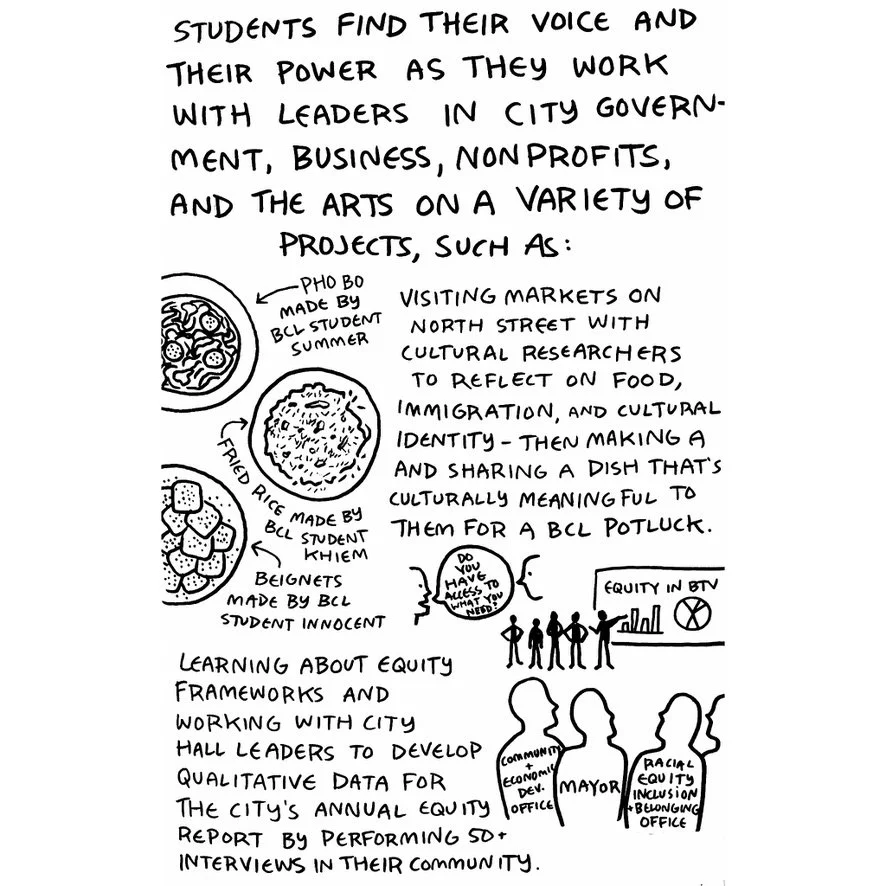 STUDENTS FIND THEIR VOICE AND
THEIR POWER AS THEY WORK
WITH LEADERS IN CITY GOVERN-
MENT, BUSINESS, NONPROFITS,
AND THE ARTS ON A VARIETY OF
PROJECTS, SUCH AS:
PHO BO
MADE BY
BCL STUDENT
SUMMER
FRIED RICE MADE BY
BCL STUDENT
KHIEM
BEIGNETS
MADE BY BCL
STUDENT INNOCENT
VISITING MARKETS ON
NORTH STREET WITH
CULTURAL RESEARCHERS
TO REFLECT ON FOOD,
IMMIGRATION, AND CULTURAL
IDENTITY - THEN MAKING A
AND SHARING A DISH THAT'S
CULTURALLY MEANINGFUL TO
THEM FOR A BCL POTLUCK.
DO
YOU
HAVE
ACCESS TO
WHAT YOU
NEED?
EQUITY IN BTV
LEARNING ABOUT EQUITY
FRAMEWORKS AND
WORKING WITH CITY
HALL LEADERS TO DEVELOP
QUALITATIVE DATA FOR
THE CITY'S ANNUAL EQUITY
REPORT BY PERFORMING 50+
INTERVIEWS IN THEIR COMMUNITY.
COMMUNITY
+
ECONOMIC
DEV.
OFFICE
MAYOR
RACIAL
EQUITY
INCLUSION
+ BELONGING
OFFICE